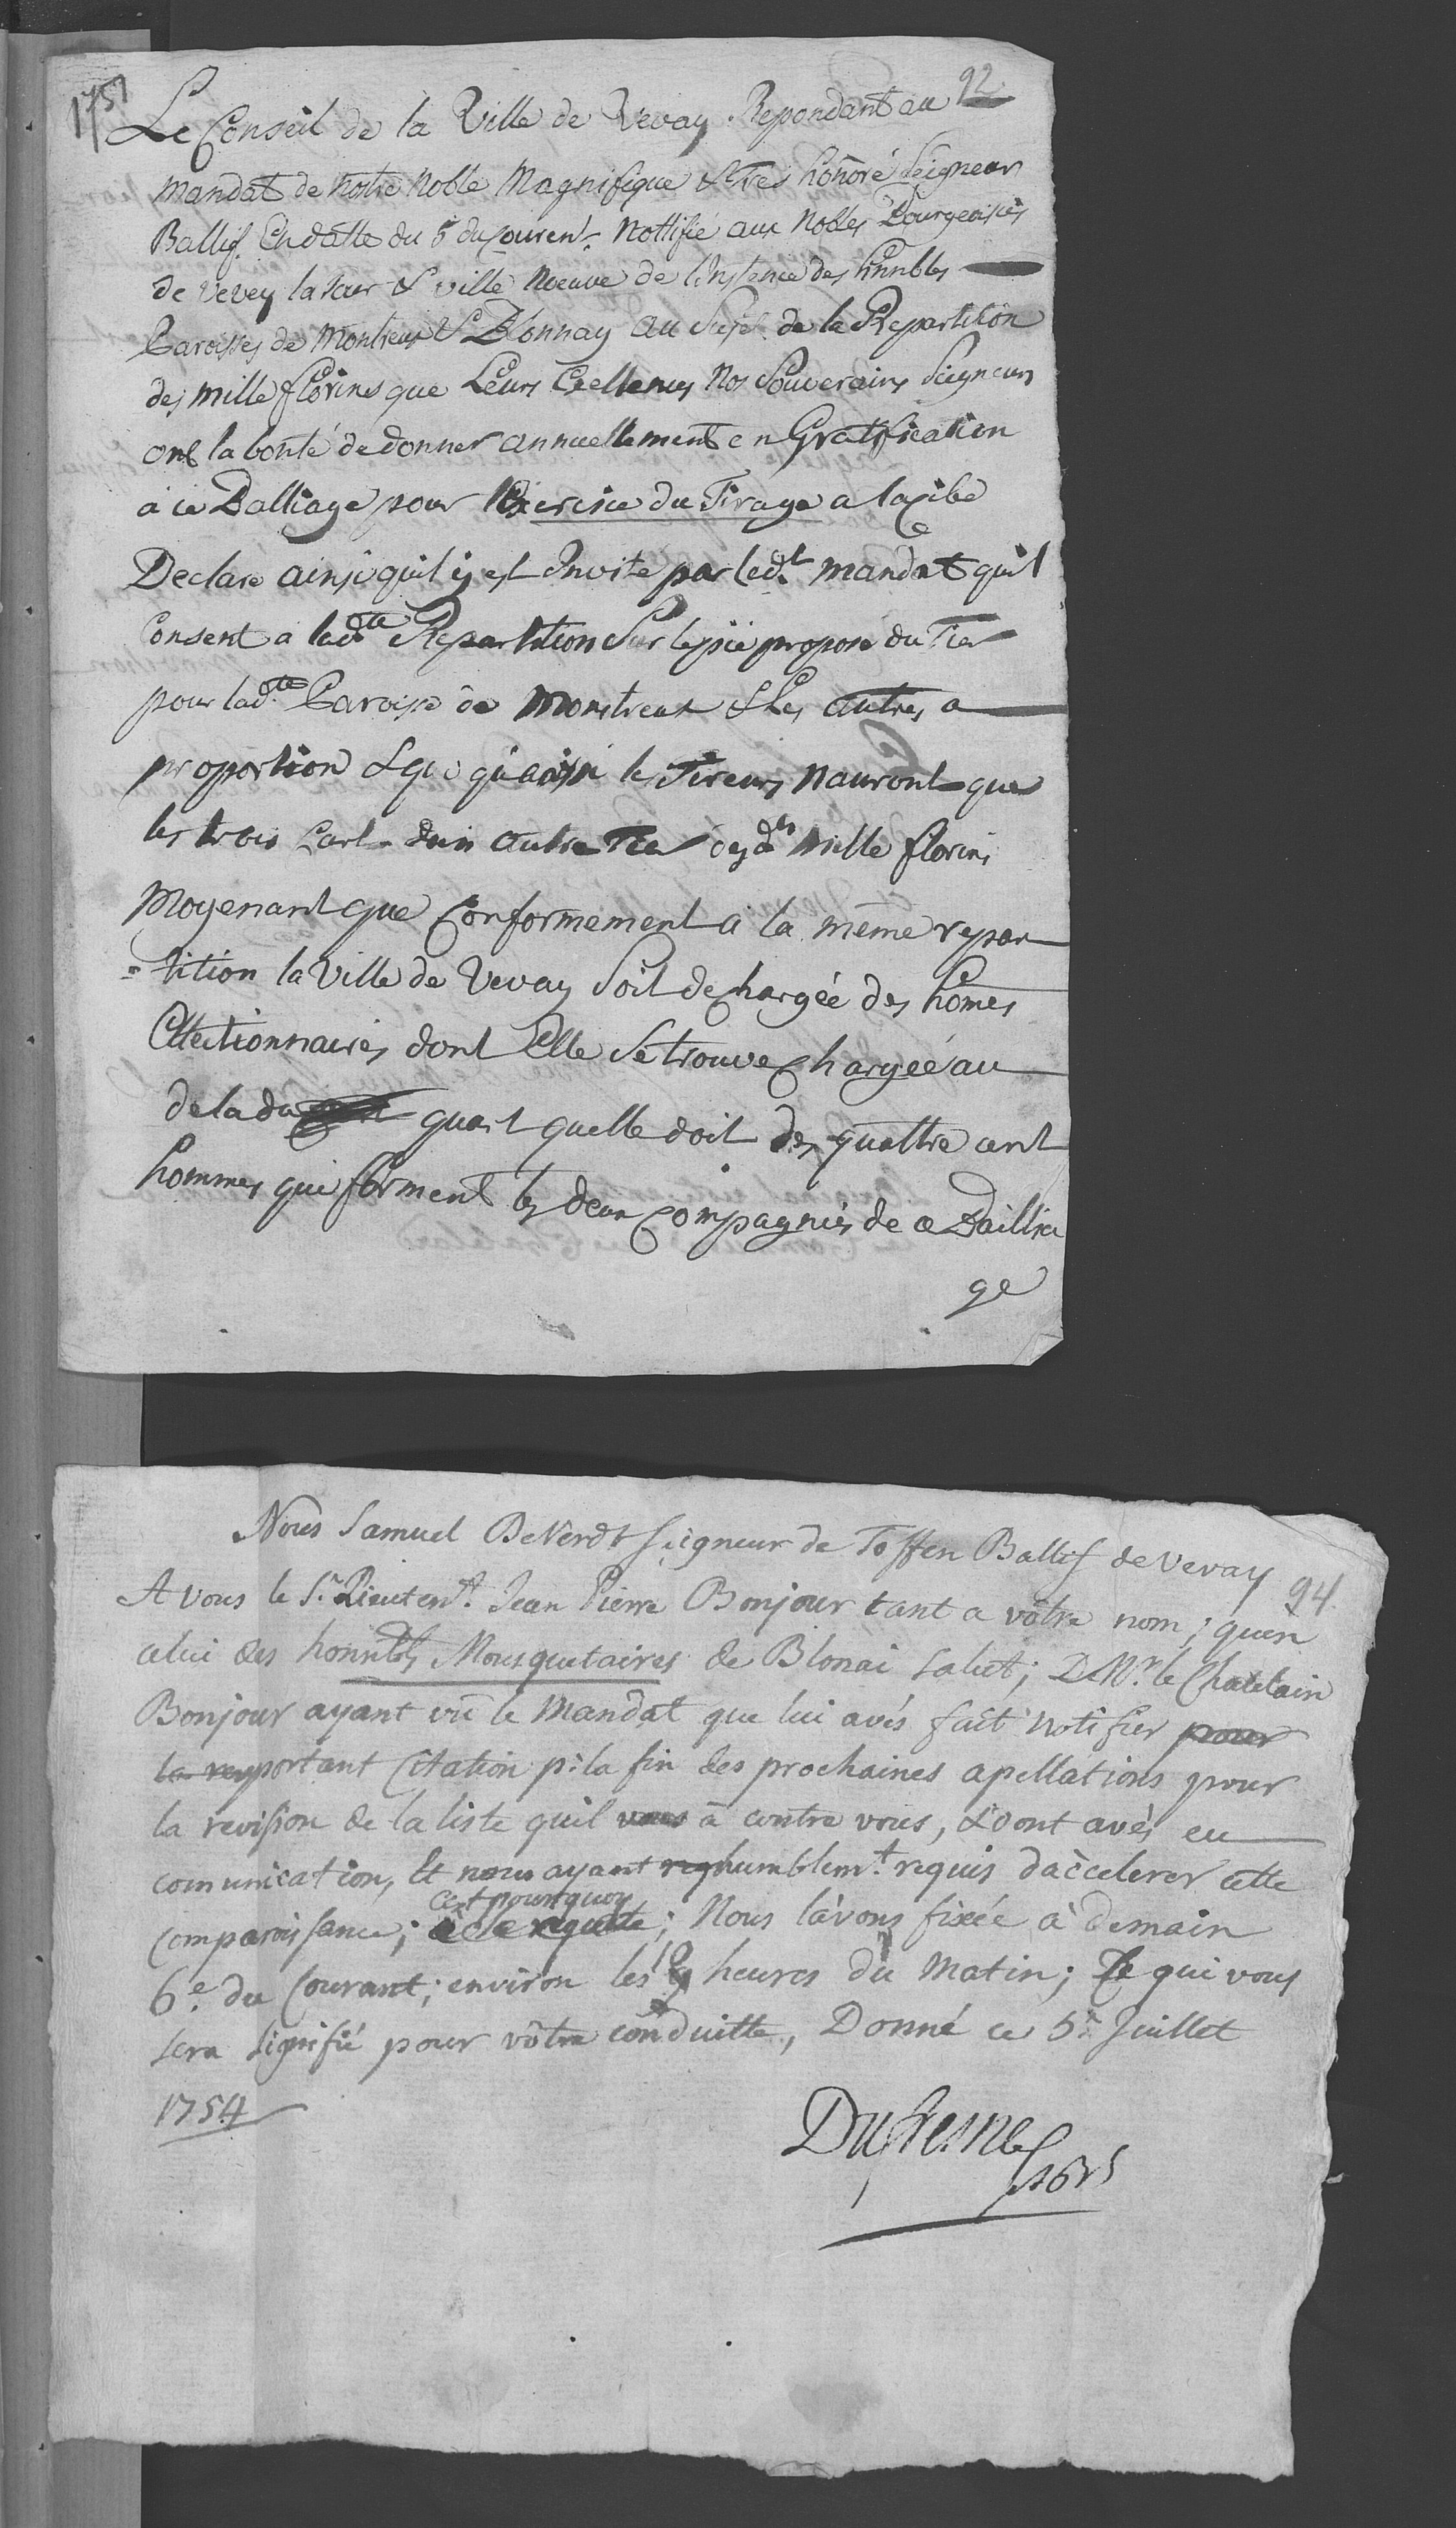 1751
92
Le Conseil de la Ville de Vevay Repondant au
Mandat de notre Noble Magnifique & tres honoré Seigneur
Ballif En datte du 5 du Courent Nottifié aux Nobles Bourgeoisies
de Vevey la Tour & ville Neuve de linstence des honnbles
Paroisses de Montreux & Blonnay au Sujet de la Repartition
des mille florins que Leurs Excellences Nos Souverains Seigneurs
ont la bonté de donner annuellement en Gratification
à ce Balliage pour lExercice du Tirage a la Cible
Declare ainsi quil y est Invité par led.t mandat quil
Consent a lad.te Repartition Sur le pié proposé du Tier
pour lad.te Paroisse de Montreux & Les autres a
proportion & que les Tireurs nauront que
les trois cart dun autre Tier mille florins
Moyenant que Conformement a la même repar
=tition la Ville de Vevay Soit dechargée des hômes
Ellectionnaires dont Elle Se trouve Chargée au
dela du quart quelle doit des quattre cent
hommes qui forment les deux Compagnies de ce Baillia
ge
Nous Samuel De Werdt Seigneur de Toffen Ballif de Vevay
94.
A vous le S.r Lieuten.t Jean Pierre Bonjour tant a vôtre nom, quen
celui des honnbles Mousquetaires de Blonai Salut; De M.r le Chatelain
Bonjour ayant vû le Mandat que lui avés fait notifier pour
la reyportant Citation p.r la fin des prochaines apellations pour
la revision de la liste quil vous à contre vous, & dont avés eu
comunication, Et nous ayant reqhumblem.t requis daccelerer cette
cest pourquoy
Comparoissance; à cete requette; Nous lâvons fixée à demain
6.e du Courant; environ les 10 heures du Matin; Ce qui vous
sera signifié pour vôtre conduitte, Donné ce 5.e Juillet
1754
Dufresne